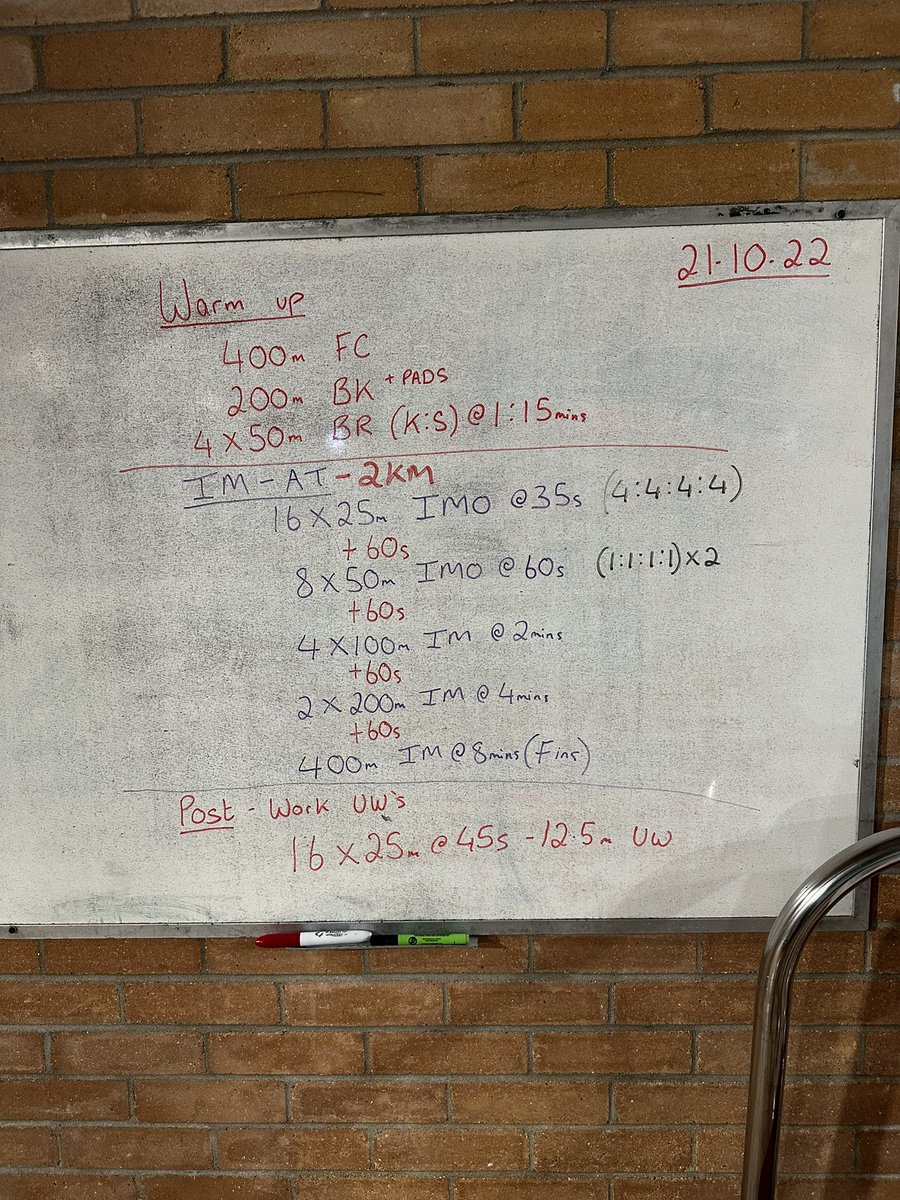 21.10.22
Warm up
400m FC
200m BK + PADS
4 x 50m BR (K:S) @ 1:15mins
IM - AT - 2KM
16 x 25m IMO @ 35s (4:4:4:4)
+ 60s
8 x 50m IMO @ 60s (1:1:1:1) x 2
+60s
4 x 100m IM @ 2mins
+60s
2 x 200m IM @ 4mins
+60s
400m IM @ 8mins (Fins)
Post - Work UW's
16 x 25m @ 45s - 12.5m UW